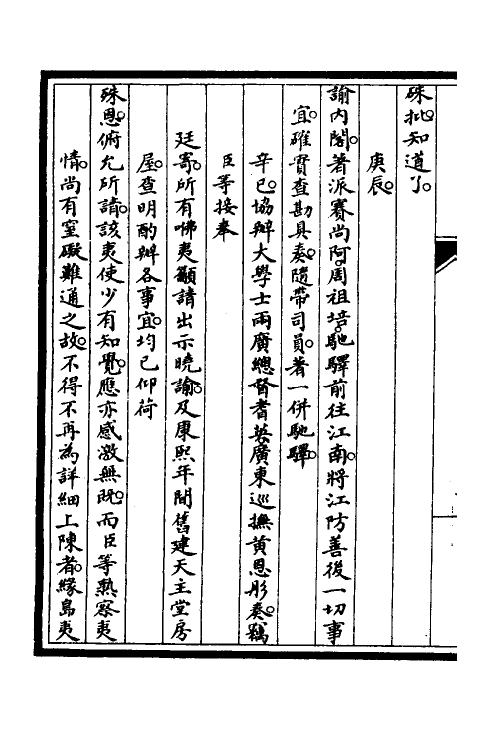 硃批知道了。
庚辰。
諭內閣。著派賽尚阿。周祖培。馳驛前往江南。將江防善後一切事
宜。確實查勘具奏。隨帶司員。著一併馳驛。
辛巳。協辦大學士兩廣總督耆英廣東巡撫黃恩彤奏。竊
臣等接奉
廷寄。所有咈夷籲請出示曉諭。及康熙年間舊建天主堂房
屋。查明酌辦各事宜。均已仰荷
硃恩。俯允所請。該夷使少有知覺。應亦感激無既。而臣等熟察夷
情。尚有窒礙難通之故。不得不再為詳細上陳者。緣島夷